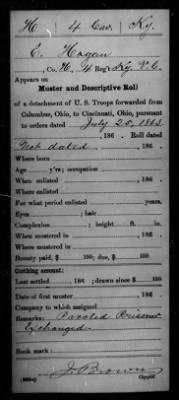 H | 4 Cav. | Ky.
C. Hogan
, Co. H, 4 Reg't Ky. V. C.
Appears on
Muster and Descriptive Roll
of a detachment of U. S. Troops forwarded from
Columbus, Ohio, to Cincinnati, Ohio, pursuant
to orders dated July 20, 1863
, 186 . Roll dated
Not dated , 186 .
Where born
Age y'rs; occupation
When enlisted , 186 .
Where enlisted
For what period enlisted years.
Eyes ; hair
Complexion ; height ft. in.
When mustered in , 186 .
Where mustered in
Bounty paid, $ 100; due, $ 100
Clothing account:
Last settled , 186 ; drawn since $ 100
Date of first muster , 186 .
Company to which assigned
Remarks: Paroled Prisoner
Exchanged
Book mark:
J. Brown
Copyist.